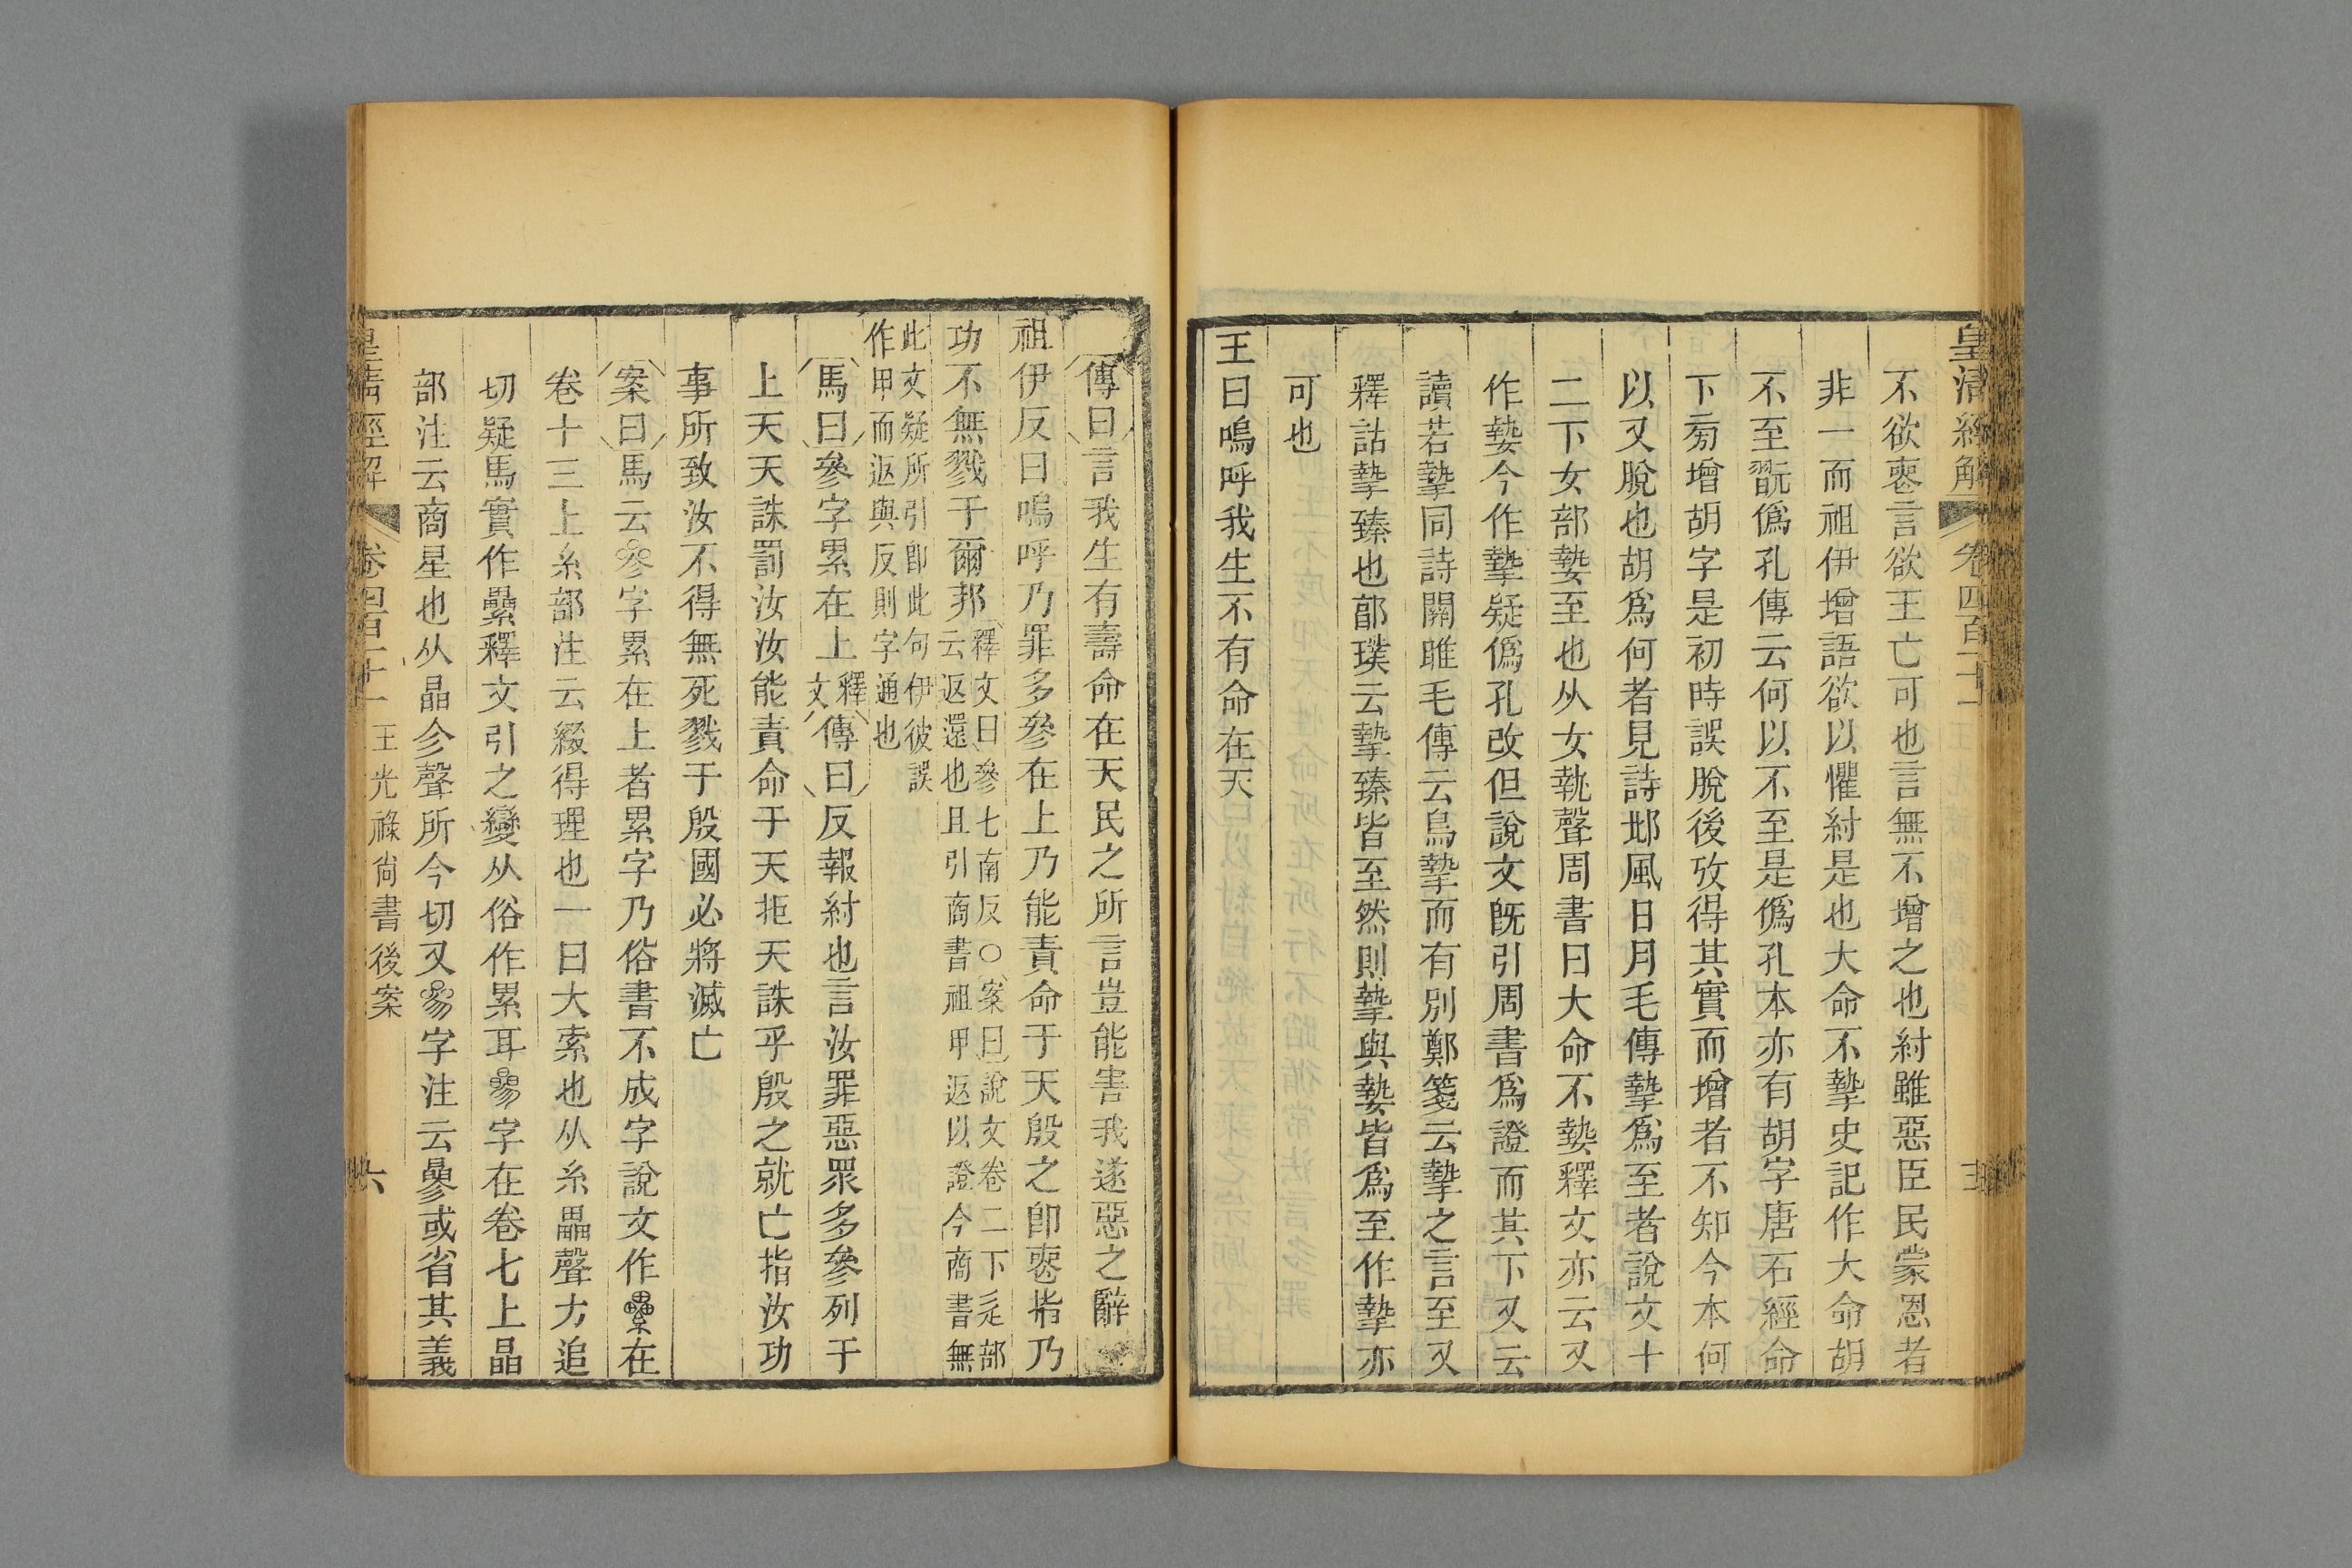 皇清經解 卷四百二十一
不欲喪言欲王亡可也言無不增之也紂雖惡臣民蒙恩者
非一而祖伊增語欲以懼紂是也大命不摯史記作大命胡
不至翫僞孔傳云何以不至是僞孔本亦有胡字唐石經命
下㫄增胡字是初時誤脫後攷得其實而增者不知今本何
以又脫也胡爲何者見詩邶風日月毛傳摯爲至者說文十
二下女部𡠗至也从女執聲周書曰大命不𡠗釋文亦云又
作𡠗今作摯疑僞孔改但說文旣引周書爲證而其下又云
讀若摯同詩關雎毛傳云鳥摯而有別鄭箋云摯之言至又
釋詁摯臻也郭璞云摯臻皆至然則摯與𡠗皆爲至作摯亦
可也
王曰嗚呼我生不有命在天
傳曰言我生有壽命在天民之所言豈能害我遂惡之辭
祖伊反曰嗚呼乃罪多參在上乃能責命于天殷之卽喪指乃
功不無戮于爾邦釋文曰參七南反○案曰說文卷二下辵部
云返還也且引商書祖甲返以證今商書無
此文疑所引卽此句伊彼誤
作甲而返與反則字通也
馬曰參字累在上釋文傳曰反報紂也言汝罪惡眾多參列于
上天天誅罰汝汝能責命于天拒天誅乎殷之就亡指汝功
事所致汝不得無死戮于殷國必將滅亡
案曰馬云厽字累在上者累字乃俗書不成字說文作纍在
卷十三上糸部注云綴得理也一曰大索也从糸畾聲力追
切疑馬實作纍釋文引之變从俗作累耳曑字在卷七上晶
部注云商星也从晶㐱聲所今切又曑字注云曑或省其義
皇清經解 卷四百二十一 王光祿尙書後案 六